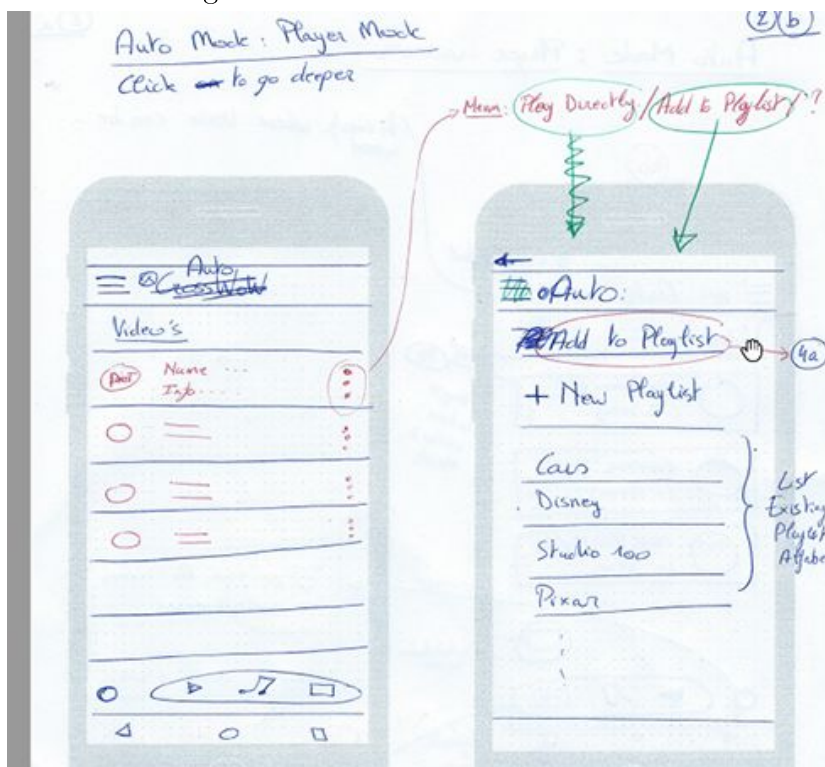 Auto Mode : Player Mode
2 b
Click to go deeper
Menu: Play Directly / Add to Playlist / ?
Auto
CrossWoW
Video's
Name ...
Info ....
Auto:
Add to Playlist
4a
+ New Playlist
Cars
Disney
Studio 100
Pixar
List
Existing
Playlist
Alfabe